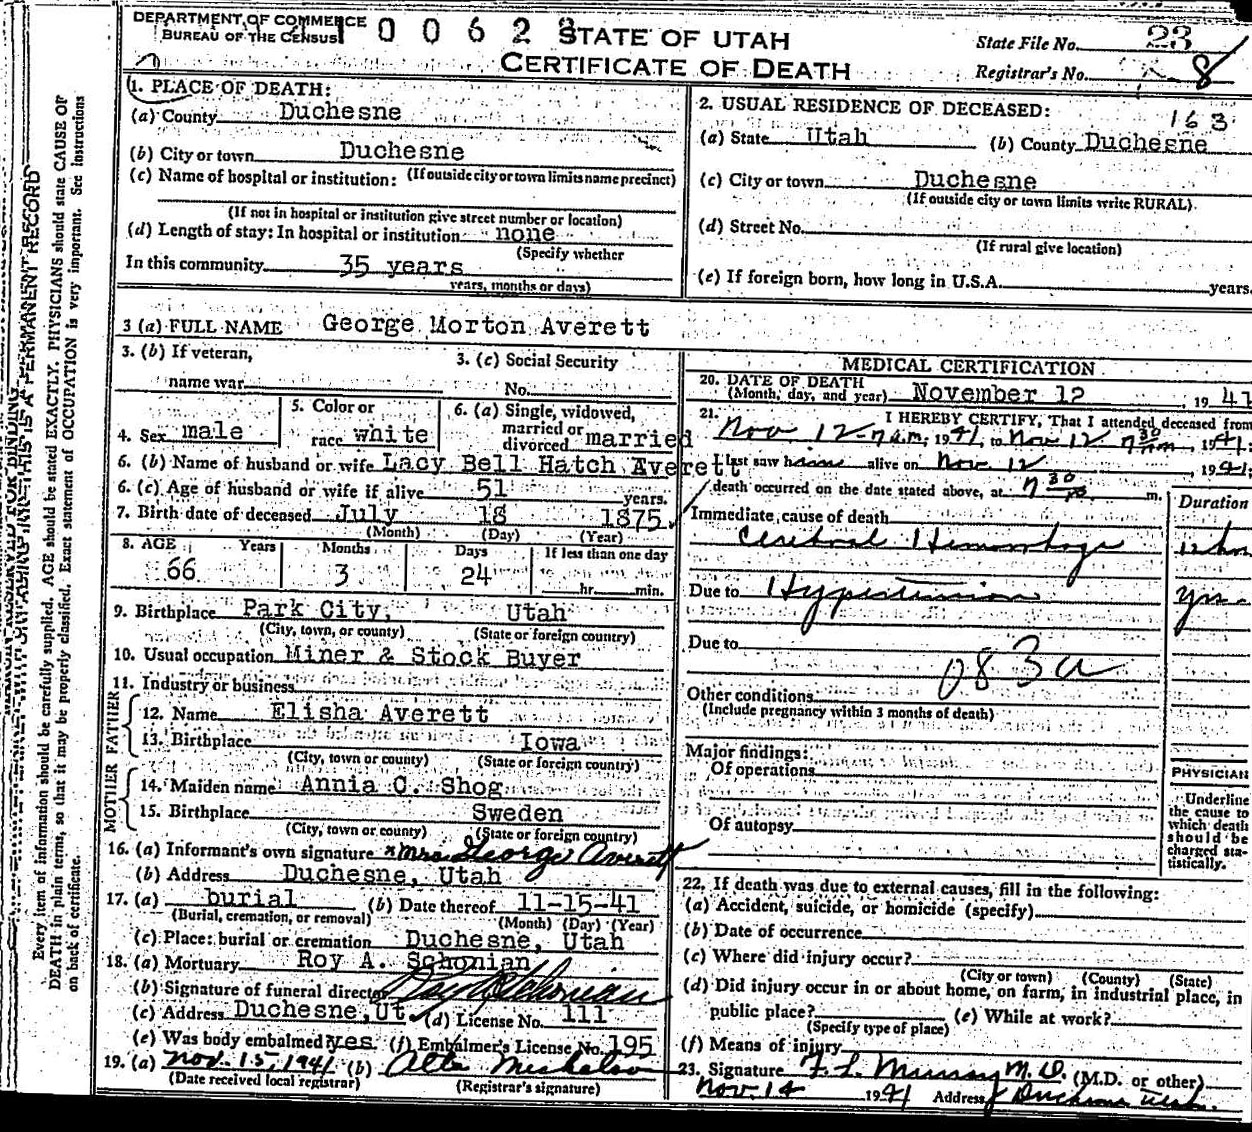 DEPARTMENT OF COMMERCE
BUREAU OF THE CENSUS
0 0 6 2 3
STATE OF UTAH
CERTIFICATE OF DEATH
State File No. 23
Registrar's No. 8
1. PLACE OF DEATH:
(a) County Duchesne
(b) City or town Duchesne
(c) Name of hospital or institution: (If outside city or town limits name precinct)
(If not in hospital or institution give street number or location)
(d) Length of stay: In hospital or institution none
(Specify whether
In this community 35 years
years, months or days)
2. USUAL RESIDENCE OF DECEASED:
163
(a) State Utah (b) County Duchesne
(c) City or town Duchesne
(If outside city or town limits write RURAL)
(d) Street No.
(If rural give location)
(e) If foreign born, how long in U.S.A. years.
3 (a) FULL NAME George Morton Averett
3. (b) If veteran, name war
3. (c) Social Security No.
4. Sex male
5. Color or race white
6. (a) Single, widowed, married or divorced married
6. (b) Name of husband or wife Lacy Bell Hatch Averett
6. (c) Age of husband or wife if alive 51 years.
7. Birth date of deceased July 18 1875
(Month) (Day) (Year)
8. AGE Years Months Days If less than one day
66 3 24 hr. min.
9. Birthplace Park City, Utah
(City, town, or county) (State or foreign country)
10. Usual occupation Miner & Stock Buyer
11. Industry or business
FATHER
12. Name Elisha Averett
13. Birthplace Iowa
(City, town or county) (State or foreign country)
MOTHER
14. Maiden name Annia C. Shog
15. Birthplace Sweden
(City, town or county) (State or foreign country)
16. (a) Informant's own signature x Mrs George Averett
(b) Address Duchesne, Utah
17. (a) burial (b) Date thereof 11-15-41
(Burial, cremation, or removal) (Month) (Day) (Year)
(c) Place: burial or cremation Duchesne, Utah
18. (a) Mortuary Roy A. Schonian
(b) Signature of funeral director Roy A Schonian
(c) Address Duchesne, Ut (d) License No. 111
(e) Was body embalmed? yes (f) Embalmer's License No. 195
19. (a) Nov. 15, 1941 (b) Alta
(Date received local registrar) (Registrar's signature)
MEDICAL CERTIFICATION
20. DATE OF DEATH
(Month, day, and year) November 12, 1941
21. I HEREBY CERTIFY, That I attended deceased from
Nov 12 - 7 am, 1941, to Nov 12 7 30 pm, 1941:
I last saw him alive on Nov 12 1941:
death occurred on the date stated above, at 7 30 p. m.
Duration
Immediate cause of death
Cerebral Hemorrhage 12 hrs
Due to Hypertension yrs-
Due to
083a
Other conditions
(Include pregnancy within 3 months of death)
Major findings:
Of operations
Of autopsy
PHYSICIAN
Underline
the cause to
which death
should be
charged sta-
tistically.
22. If death was due to external causes, fill in the following:
(a) Accident, suicide, or homicide (specify)
(b) Date of occurrence
(c) Where did injury occur?
(City or town) (County) (State)
(d) Did injury occur in or about home, on farm, in industrial place, in
public place? (e) While at work?
(Specify type of place)
(f) Means of injury
23. Signature F. L. Murray M. D. (M.D. or other)
Nov. 14 1941 Address Duchesne Utah.
THIS IS A PERMANENT RECORD
Every item of information should be carefully supplied. AGE should be stated EXACTLY. PHYSICIANS should state CAUSE OF
DEATH in plain terms, so that it may be properly classified. Exact statement of OCCUPATION is very important. See instructions
on back of certificate.